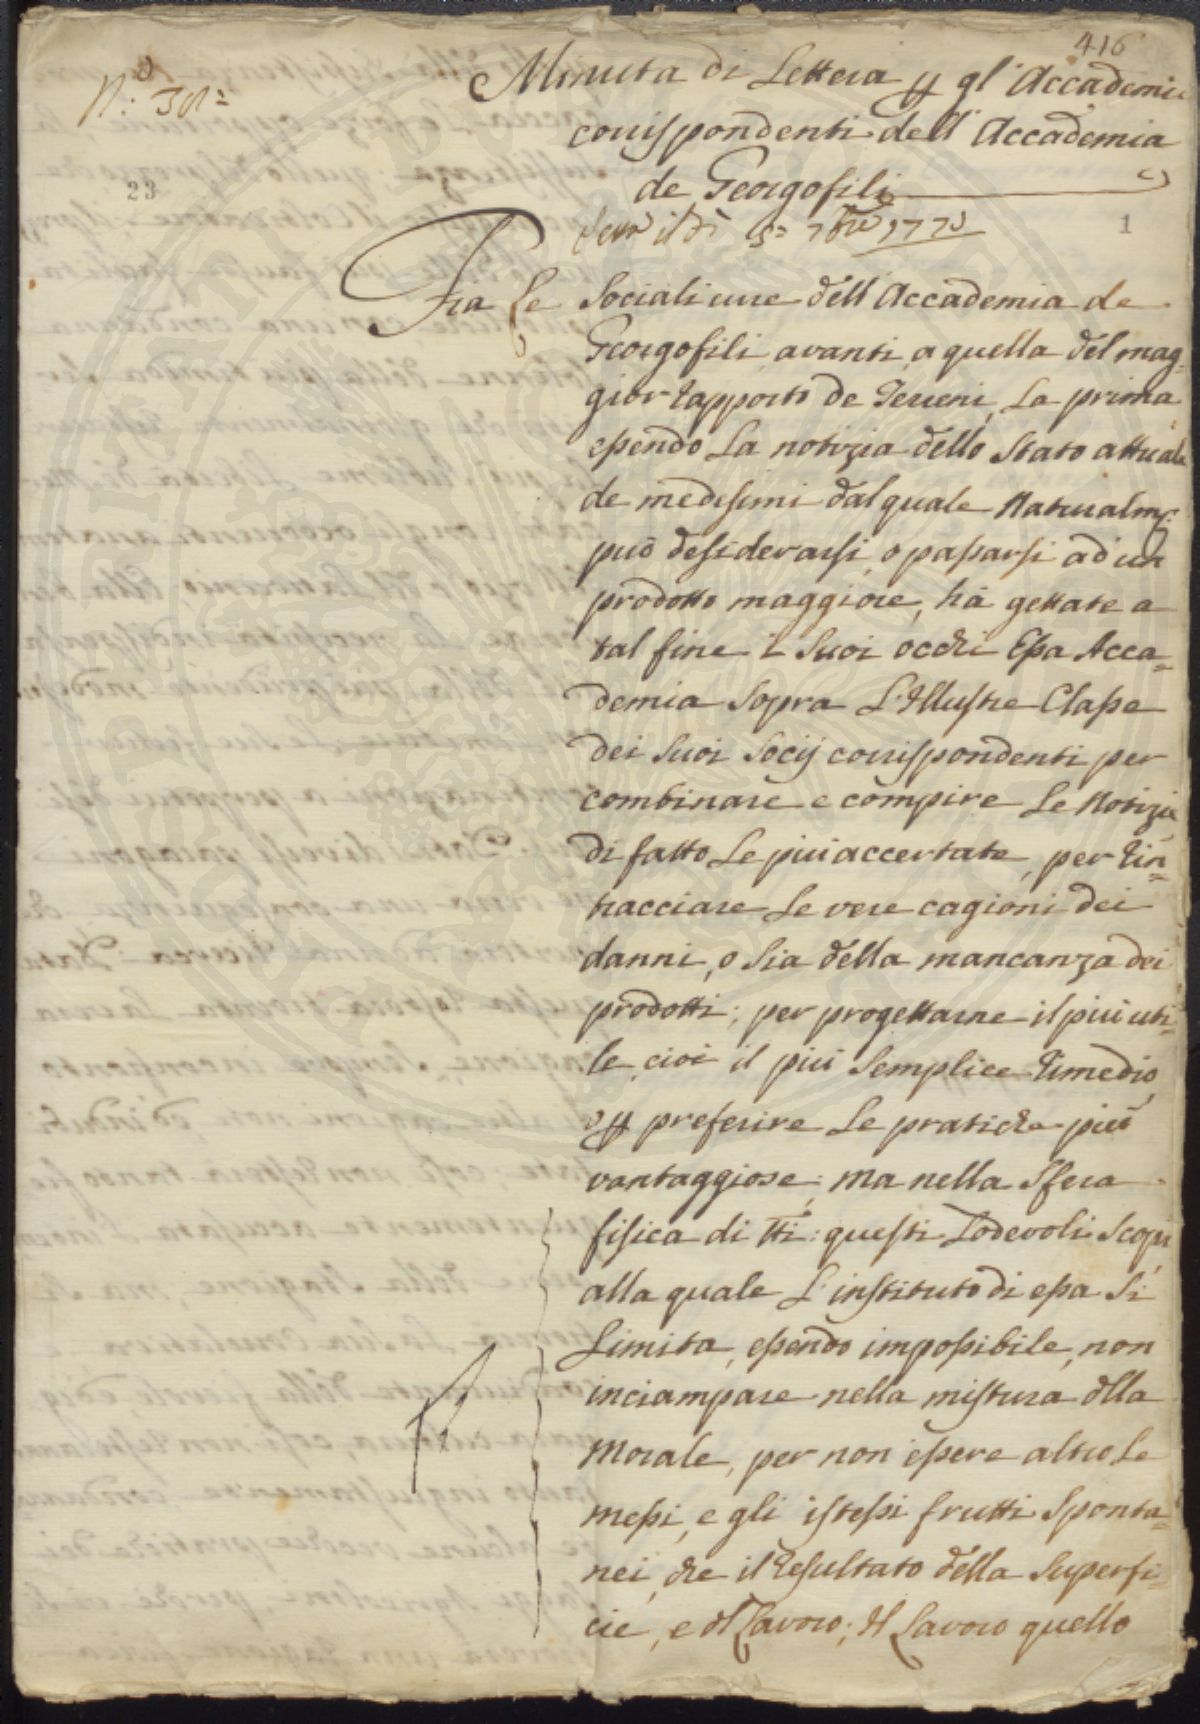 416
N.º 30=
Minuta di Lettera p gl'Accademi
corrispondenti dell'Accademia
de Georgofili
23
il dì 5= 7bre 1773
1
Fra le Sociali cure dell'Accademia de
Georgofili, avanti a quella del mag-
gior rapporto de Terreni, la prima
essendo la notizia dello stato attuale
de medesimi dal quale naturalmte:
può desiderarsi, o passarsi ad un
prodotto maggiore, hà gettate a
tal fine i suoi occhi Essa Acca-
demia sopra l'Illustre Classe
dei suoi Socij corrispondenti per
combinare e compire le Notizie
di fatto le più accertate, per rin-
tracciare le vere cagioni dei
danni, o sia della mancanza dei
prodotti; per progettarne il più uti-
le, cioè il più semplice rimedio
o p preferire le pratiche più
vantaggiose; ma nella sfera
fisica di tti: questi lodevoli scopi
alla quale l'instituto di essa si
limita, essendo impossibile, non
inciampare nella mistura dlla
Morale, per non essere altro le
messi, e gli istessi frutti sponta-
nei, che il resultato della superfi-
cie, e dl Lavoro; Il Lavoro quello